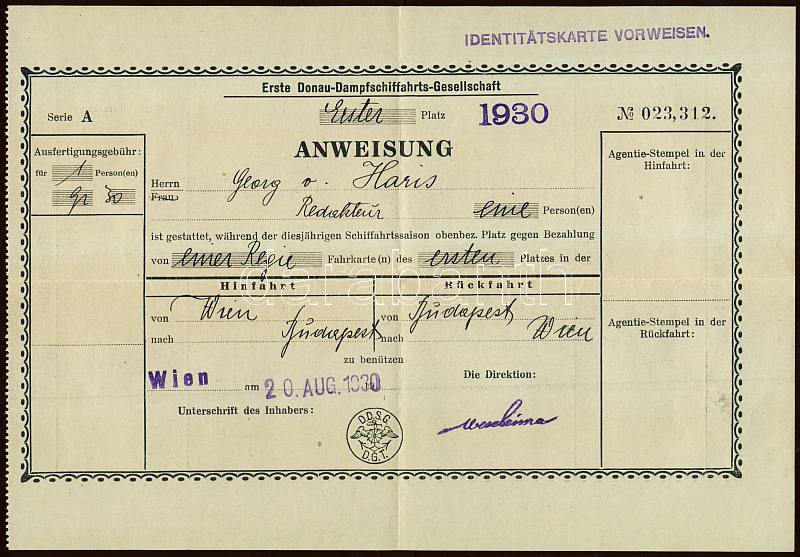 IDENTITÄTSKARTE VORWEISEN.
Erste Donau-Dampfschiffahrts-Gesellschaft
Serie A
Erster Platz
1930
№ 023,312.
ANWEISUNG
Ausfertigungsgebühr:
für 1 Person(en)
Gr 30
Herrn
Frau
Georg v. Haris
Redakteur eine Person(en)
ist gestattet, während der diesjährigen Schiffahrtssaison obenbez. Platz gegen Bezahlung
von einer Regie Fahrkarte(n) des ersten Platzes in der
Hinfahrt
Rückfahrt
von Wien
nach Budapest
von Budapest
nach Wien
zu benützen
Wien am 20. AUG. 1930
Die Direktion:
Unterschrift des Inhabers:
D.D.S.G.
D.G.T.
Agentie-Stempel in der
Hinfahrt:
Agentie-Stempel in der
Rückfahrt:
darabanth